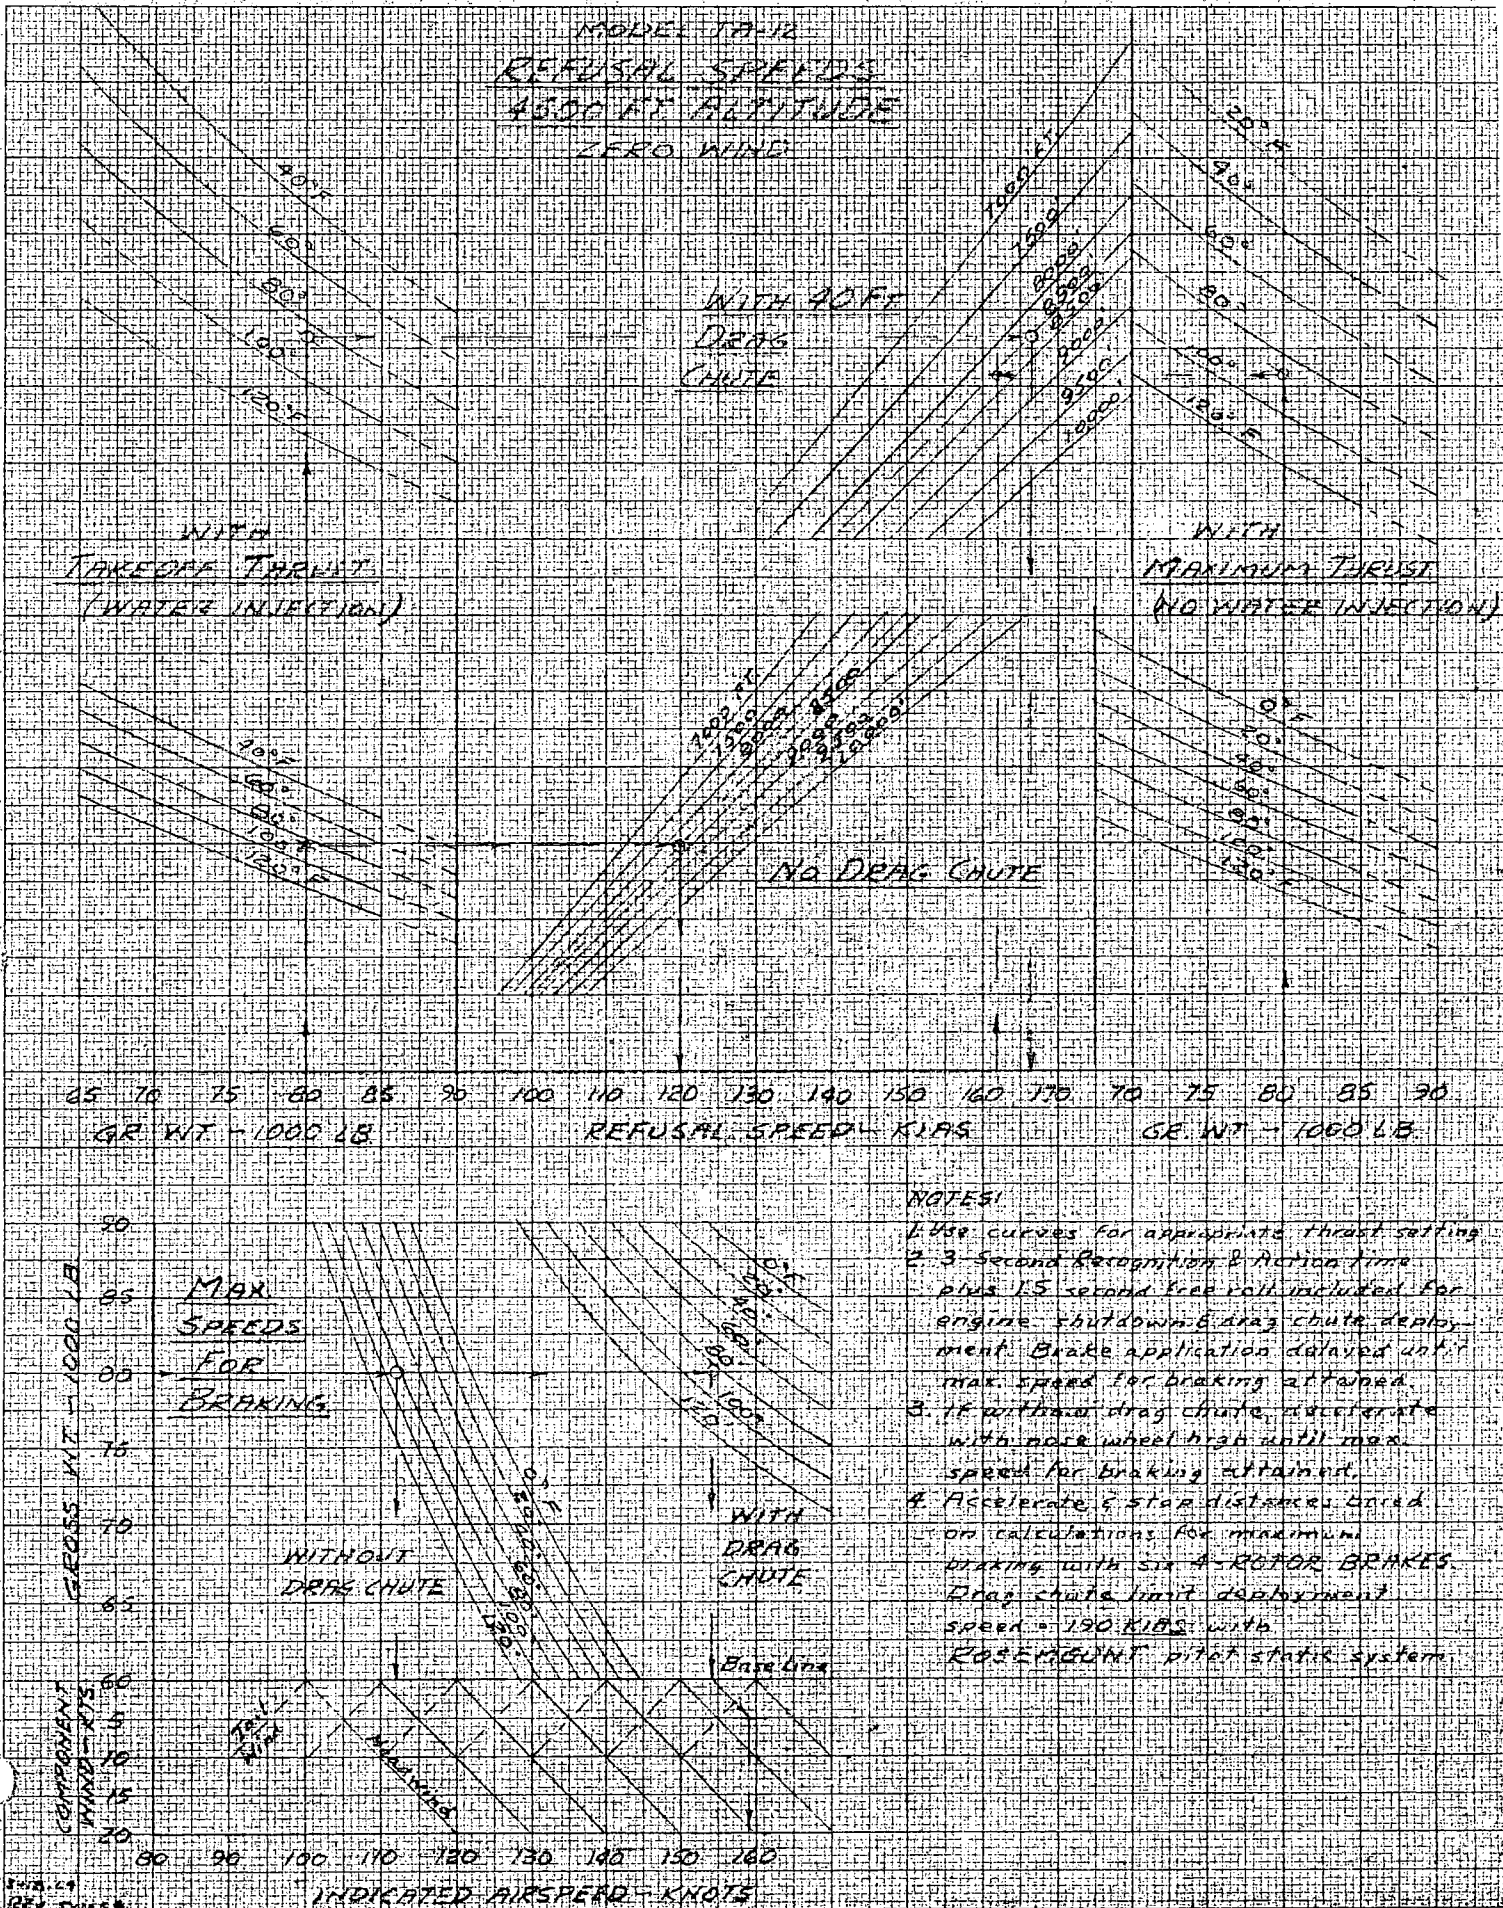 MODEL TA-12
REFUSAL SPEEDS
4500 FT ALTITUDE
ZERO WIND
40°F
60°
80°
100°
120°F
7000 FT.
7500'
8000'
8500'
9000'
9500'
10000'
20°F
40°
60°
80°
100°
120°F
WITH 40 FT
DRAG
CHUTE
WITH
TAKEOFF THRUST
(WATER INJECTION)
WITH
MAXIMUM THRUST
(NO WATER INJECTION)
40°F
60°
80°
100°F
120°F
7000 FT.
7500
8000
8500
9000
9500
10000'
0°F
20°
40°
60°
80°
100°
120°F
NO DRAG CHUTE
65 70 75 80 85 90 100 110 120 130 140 150 160 170 70 75 80 85 90
GR WT - 1000 LB
REFUSAL SPEED - KIAS
GR. WT - 1000 LB
NOTES:
1. Use curves for appropriate thrust setting
2. 3 Second Recognition & Action time
plus 1.5 second free roll included for
engine shutdown & drag chute deploy-
ment. Brake application delayed until
max. speed for braking attained.
3. If without drag chute, decelerate
with nose wheel high until max.
speed for braking attained.
4. Accelerate & stop distances based
on calculations for maximum
braking with six 4-ROTOR BRAKES
Drag chute limit deployment
speed = 190 KIAS with
ROSEMOUNT pitot static system
GROSS WT - 1000 LB
90
85
80
75
70
65
60
MAX.
SPEEDS
FOR
BRAKING
0°F
20°
40°
60°
80°
100°
120°
WITHOUT
DRAG CHUTE
WITH
DRAG
CHUTE
Base Line
COMPONENT
WIND - KTS
5
10
15
20
Tail
Wind
Headwind
80 90 100 110 120 130 140 150 160
INDICATED AIRSPEED - KNOTS